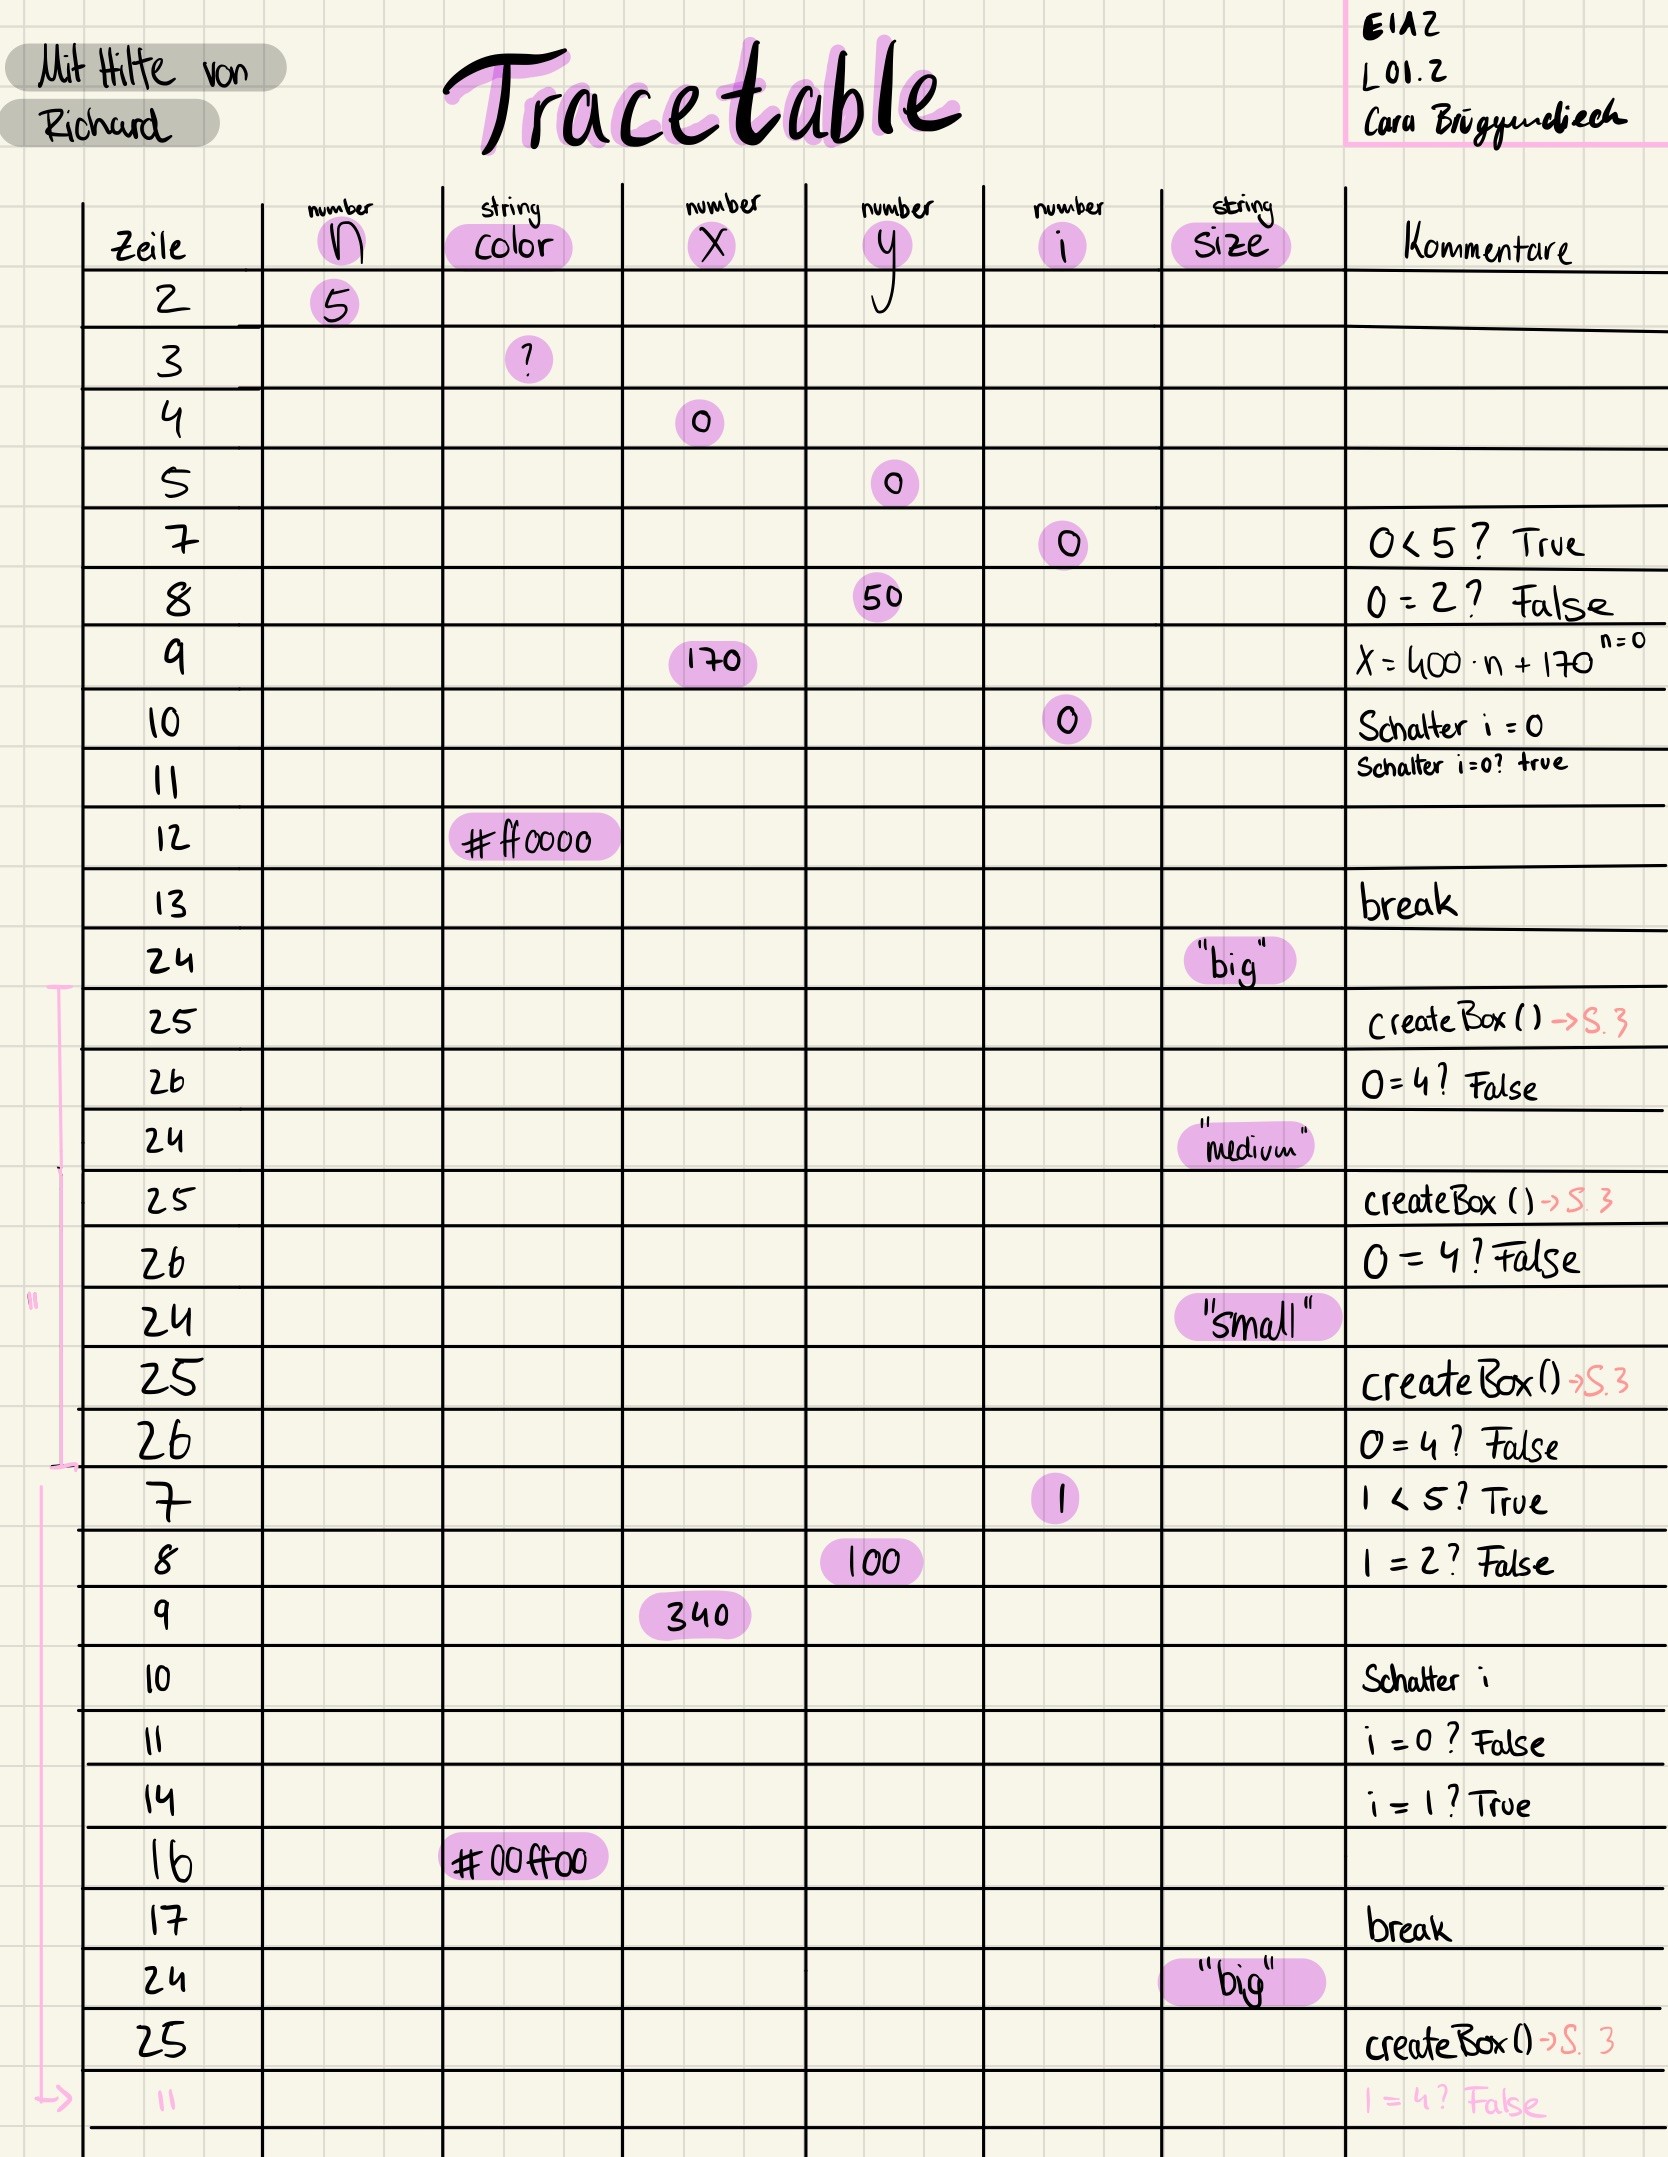 Mit Hilfe von
Richard
Tracetable
E1A2
L01.2
Cara
number string number number number string
Zeile n color x y i size Kommentare
2 5
3 ?
4 0
5 0
7 0 0 < 5 ? True
8 50 0 = 2 ? False
9 170 X = 400 · n + 170 n=0
10 0 Schalter i = 0
11 Schalter i=0? true
12 #ff0000
13 break
24 "big"
25 createBox() → S.3
26 0 = 4? False
24 "medium"
25 createBox() → S.3
26 0 = 4? False
24 "small"
25 createBox() → S.3
26 0 = 4? False
7 1 1 < 5? True
8 100 1 = 2? False
9 340
10 Schalter i
11 i = 0 ? False
14 i = 1 ? True
16 #00ff00
17 break
24 "big"
25 createBox() → S. 3
→ " 1 = 4? False
"